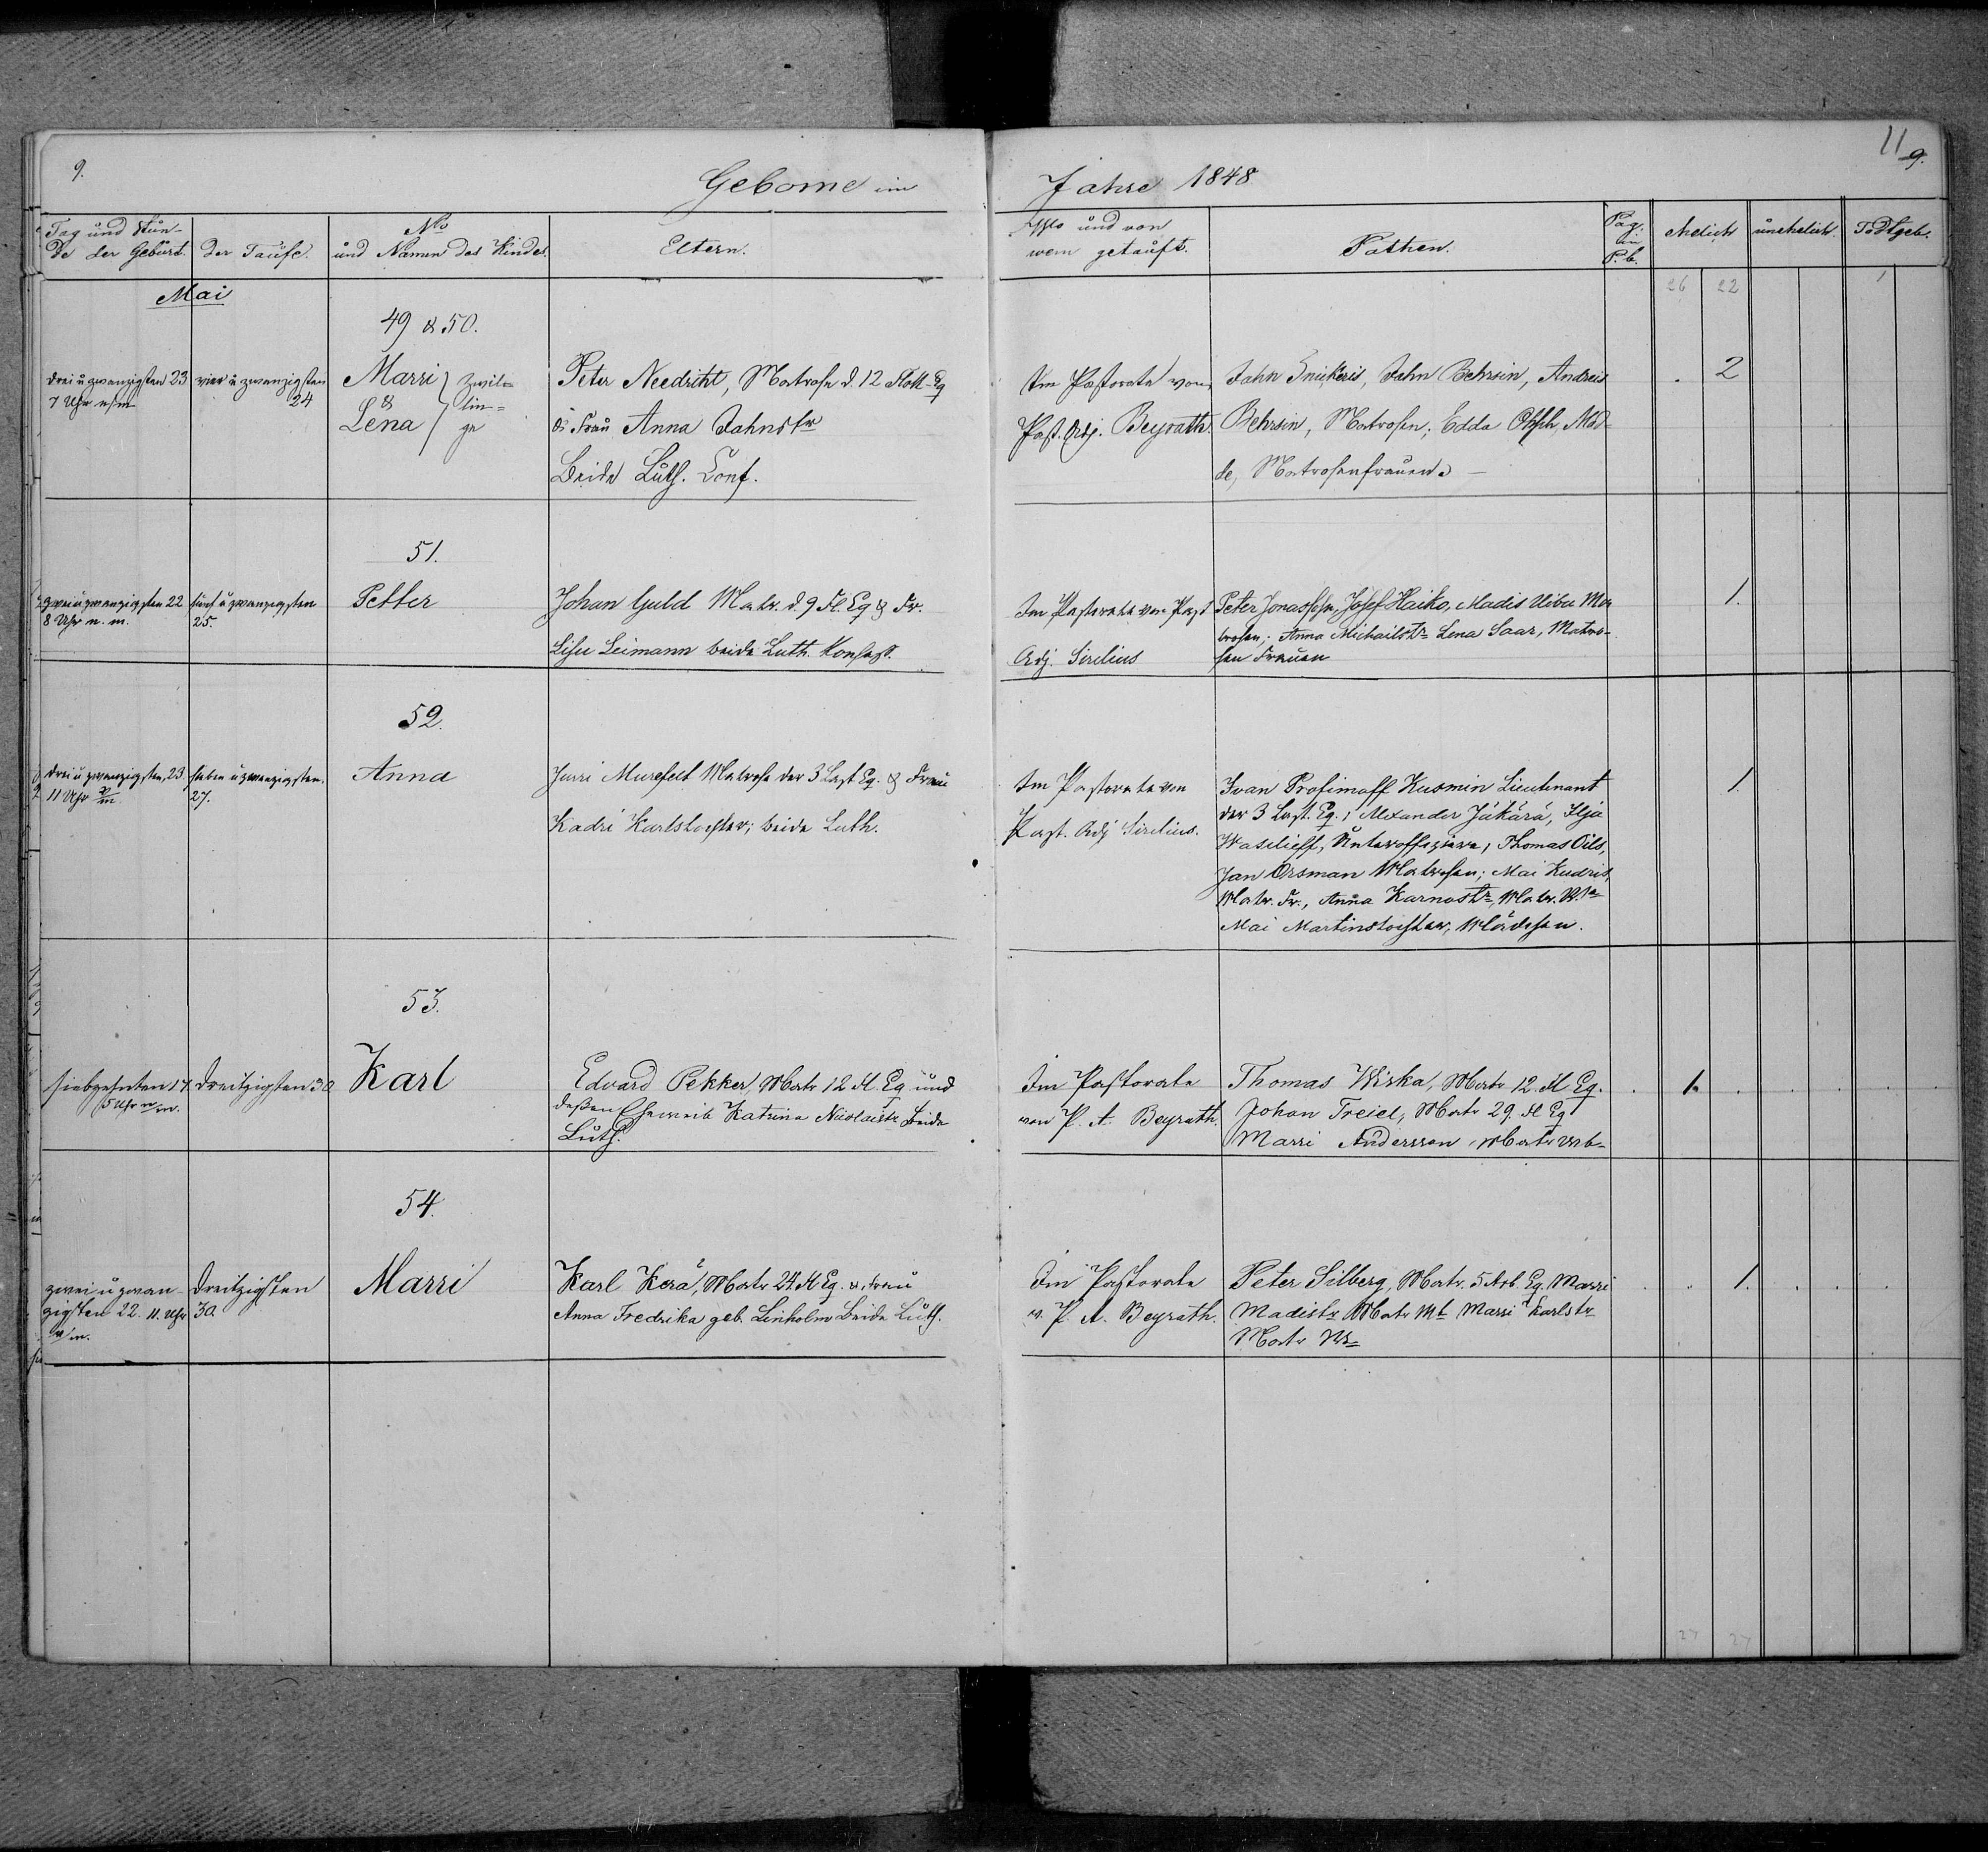 9.
Geborne im
Jahre 1848
11
9.
Tag und Stun-
de der Geburt.
der Taufe.
No
und Namen des Kindes.
Eltern.
Wo und von
wem getauft.
Pathen.
Pag.
im
P. b.
ehelich
unehelich.
Todtgeb.
Mai
26 22 1
49 & 50.
drei u zwanzigsten 23
7 Uhr n/m
vier u zwanzigsten
24
Marri
&
Lena
Zwil=
lin=
ge
Peter Needricht, Matrose d. 12 Flott-Eq
u Frau Anna Jahnstr
Beide Luth. Conf.
Im Pastorate von
Past. Adj. Beyrath.
Jahn Snickeris, Jahn Behrsin, Andreis
Behrsin, Matrosen; Edda Ohsh, Mad-
de, Matrosenfrauen
2
51.
zwei u zwanzigsten 22
8 Uhr n. m.
fünf u zwanzigsten
25.
Petter
Johan Guld Matr. d. 9 Fl Eq & Fr.
Lisu Leimann beide Luth. Konfess.
Im Pastorate von Past
Adj. Sirelius
Peter Jonassohn, Josef Haiko, Madis Uibu Ma
trosen; Anna Michailstr Lena Saar, Matro-
sen Frauen
1.
52.
drei u zwanzigsten, 23.
11 Uhr v/m.
sieben u zwanzigsten.
27.
Anna
Jurri Murefelt Matrose der 3 Last Eq. & Frau
Kadri Karlstochter; beide Luth.
Im Pastorate von
Past. Adj Sirelius.
Ivan Profimoff Kusmin Lieutenant
der 3 Last. Eq.; Alexander Jäkärä, Ilja
Wasilieff, Unteroffiziere, Thomas Oils,
Jan Orsman Matrosen; Mai Kudris,
Matr. Fr., Anna Karnostr, Matr. We
Mai Martinstochter, Mädchen.
1.
53.
siebzehnten 17
5 Uhr n/m.
dreitzigsten 30
Karl
Edvard Pekker, Matr 12 Fl. Eq und
deßen Eheweib Katrina Nicolaistr Beide
Luth.
Im Pastorate
von P. A. Beyrath.
Thomas Wiska, Matr 12. Fl Eq.
Johan Treiel, Matr 29. Fl Eq
Marri Andersson, Matr Wb-
1.
54.
zwei u zwan
zigsten 22. 11. Uhr
v/m.
Dreitzigsten
30.
Marri
Karl Kerä, Matr 24 Fl Eq. & Frau
Anna Fredrika geb. Linholm Beide Luth.
Im Pastorate
v. P. A. Beyrath.
Peter Silberg, Matr. 5 Arb Eq, Marri
Madistr Matr Mt Marri Karlstr
Matr We
1.
27 27